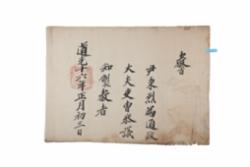 敎旨
尹秉烈爲通政
大夫吏曹參議
知製敎者
道光十六年正月初三日